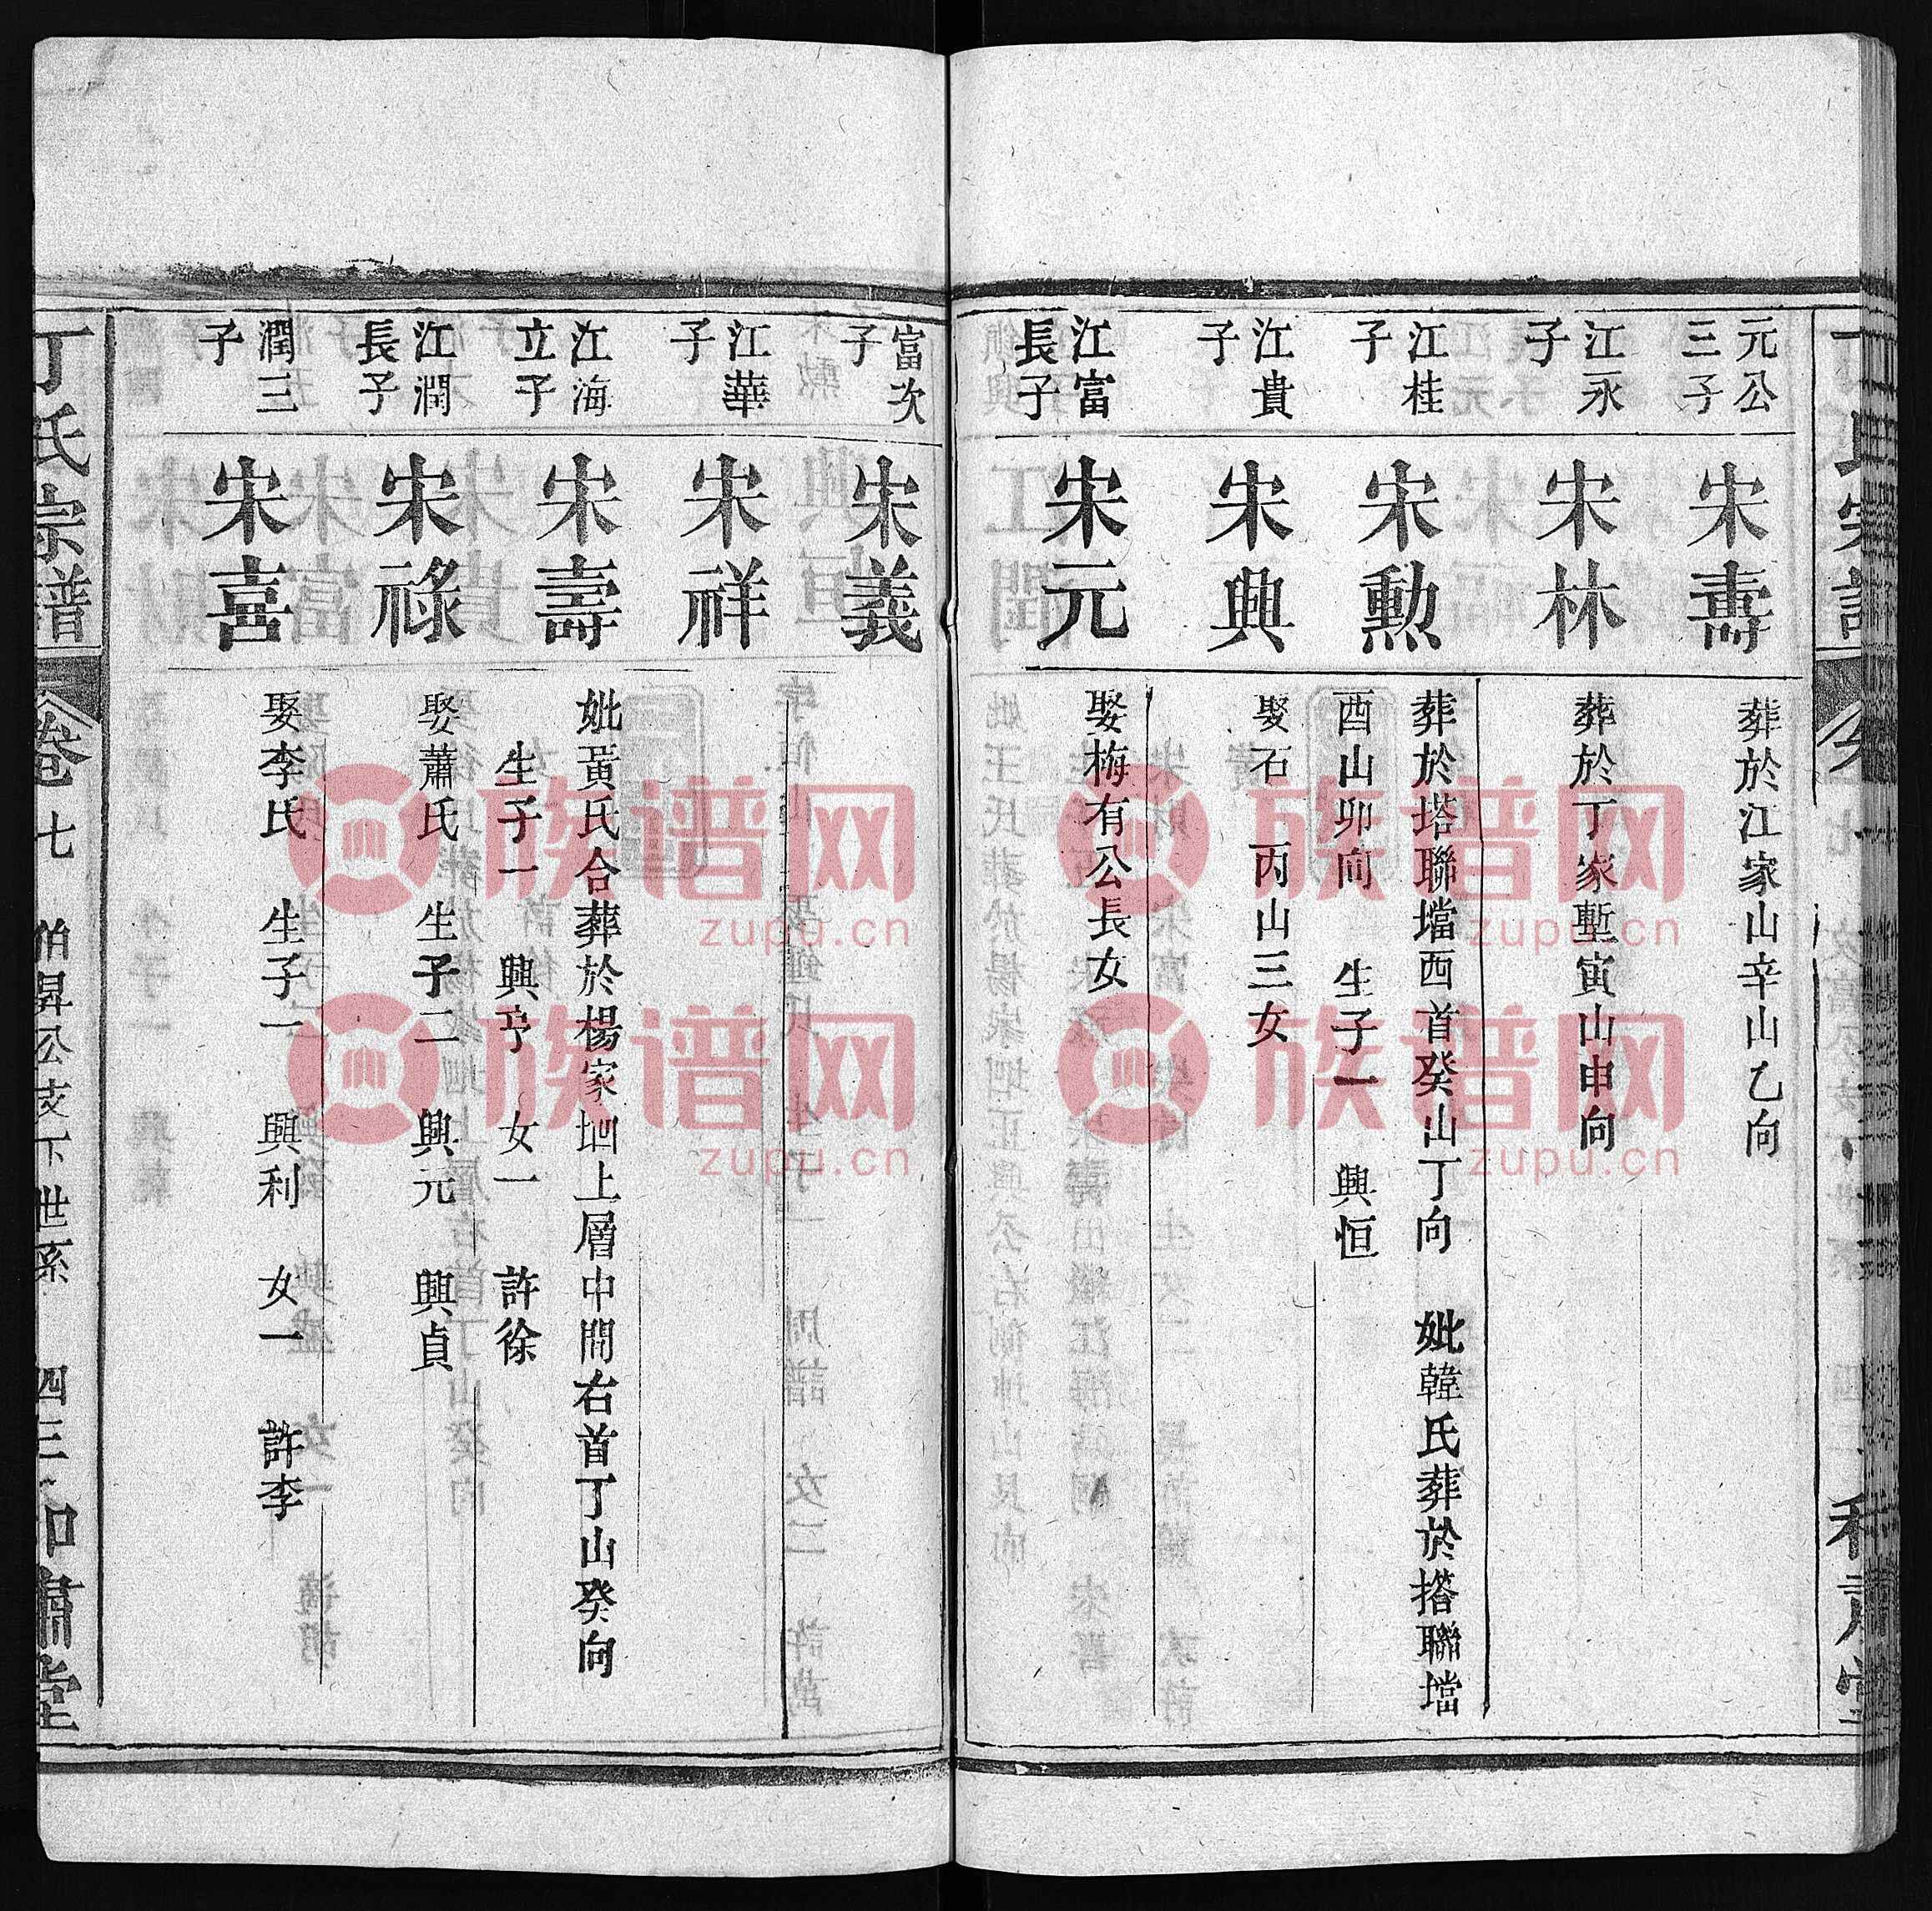 元公三子
宋壽
葬於江家山辛山乙向
江永子
宋林
葬於丁家塹寅山申向
江桂子
宋勲
葬於塔聯壋西首癸山丁向 妣韓氏葬於撘聯壋
酉山卯向 生子一 興恒
江貴子
宋典
娶石 丙山三女
江富長子
宋元
娶梅有公長女
富次子
宋義
江華子
宋祥
江海立子
宋壽
妣黃氏合葬於楊家坳上層中間右首丁山癸向
生子一 興亨 女一 許徐
江潤長子
宋祿
娶蕭氏 生子二 興元 興貞
潤三子
宋喜
娶李氏 生子一 興利 女一 許李
丁氏宗譜 卷七 伯昇公支下世系 四三 和肅堂
族谱网
zupu.cn
族谱网
zupu.cn
族谱网
zupu.cn
族谱网
zupu.cn